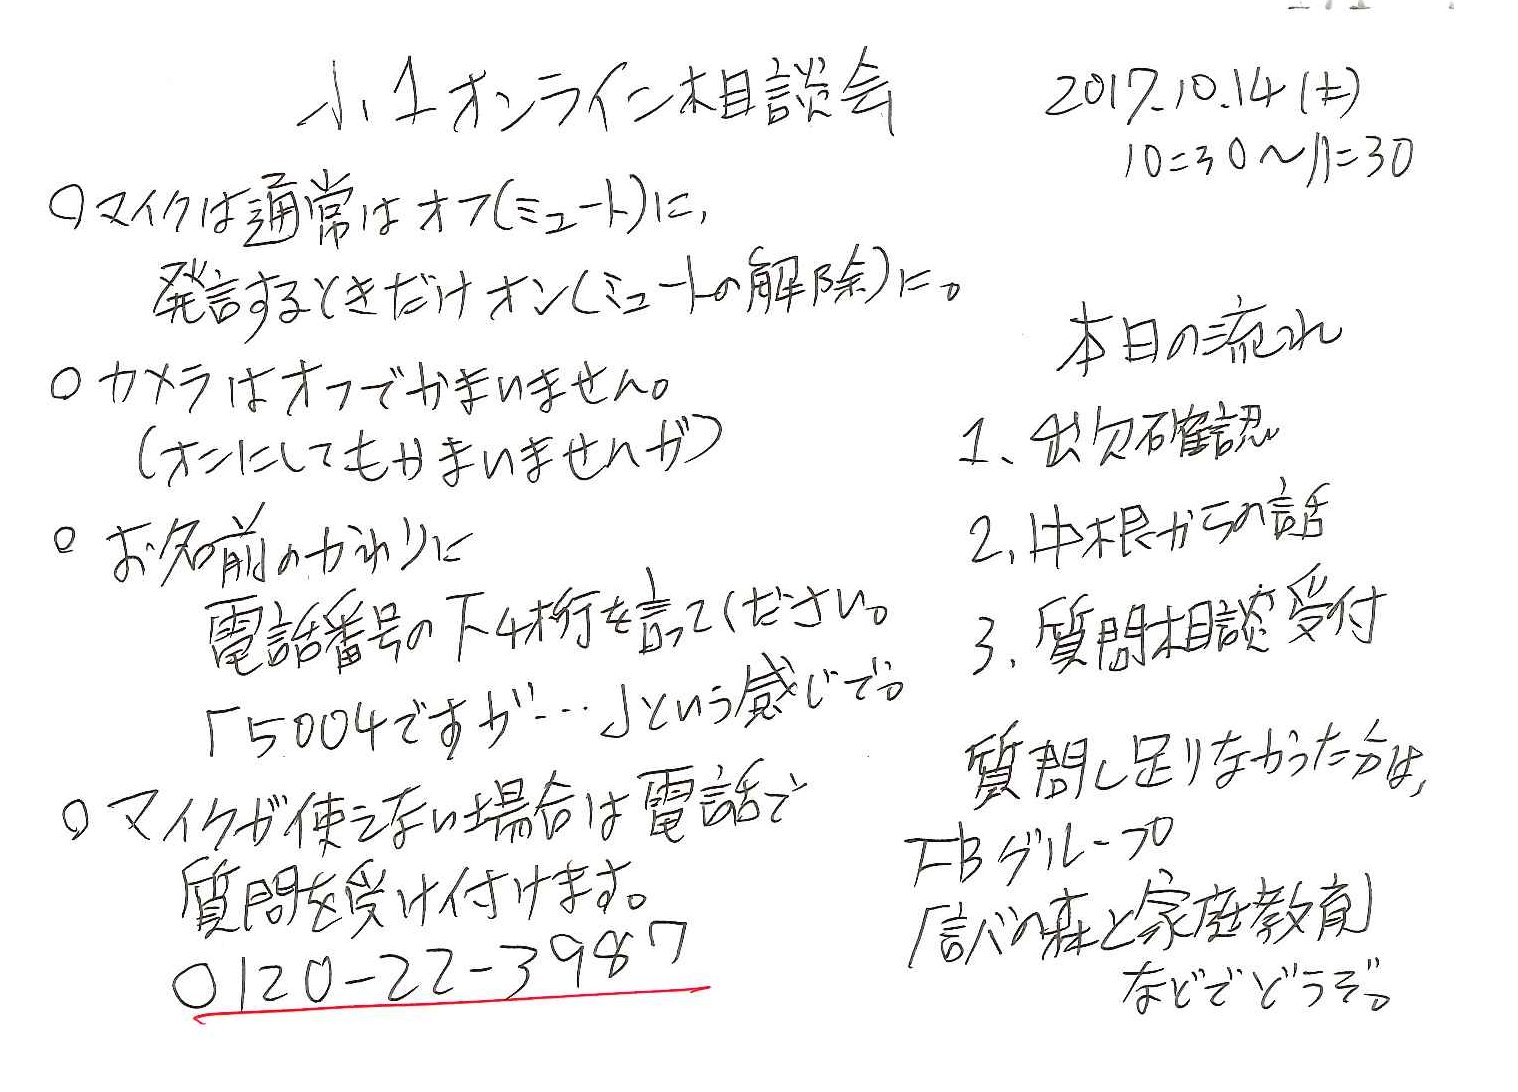 小1オンライン相談会
2017.10.14(土)
10:30〜11:30
○マイクは通常はオフ(ミュート)に,
発言するときだけオン(ミュートの解除)に。
○カメラはオフでかまいません。
(オンにしてもかまいませんが)
○お名前のかわりに
電話番号の下4桁を言ってください。
「5004ですが…」という感じで。
○マイクが使えない場合は電話で
質問を受け付けます。
0120-22-3987
本日の流れ
1、出欠確認
2,中根からの話
3,質問相談受付
質問し足りなかった方は,
FBグループ
「言葉の森と家庭教育」
などでどうぞ。